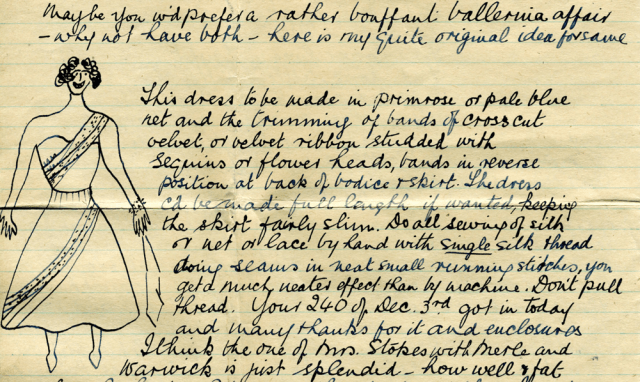 Maybe you w'd prefer a rather bouffant ballerina affair
- why not have both - here is my quite original idea for same
This dress to be made in primrose or pale blue
net and the trimming of bands of cross cut
velvet, or velvet ribbon studded with
sequins or flower heads, bands in reverse
position at back of bodice & skirt. The dress
c'd be made full length if wanted, keeping
the skirt fairly slim. Do all sewing of silk
or net or lace by hand with single silk thread
doing seams in neat small running stitches, you
get a much neater effect than by machine. Don't pull
thread. Your 240 of Dec. 3rd got in today
and many thanks for it and enclosures
I think the one of Mrs. Stokes with Merle and
Warwick is just splendid - how well & fat